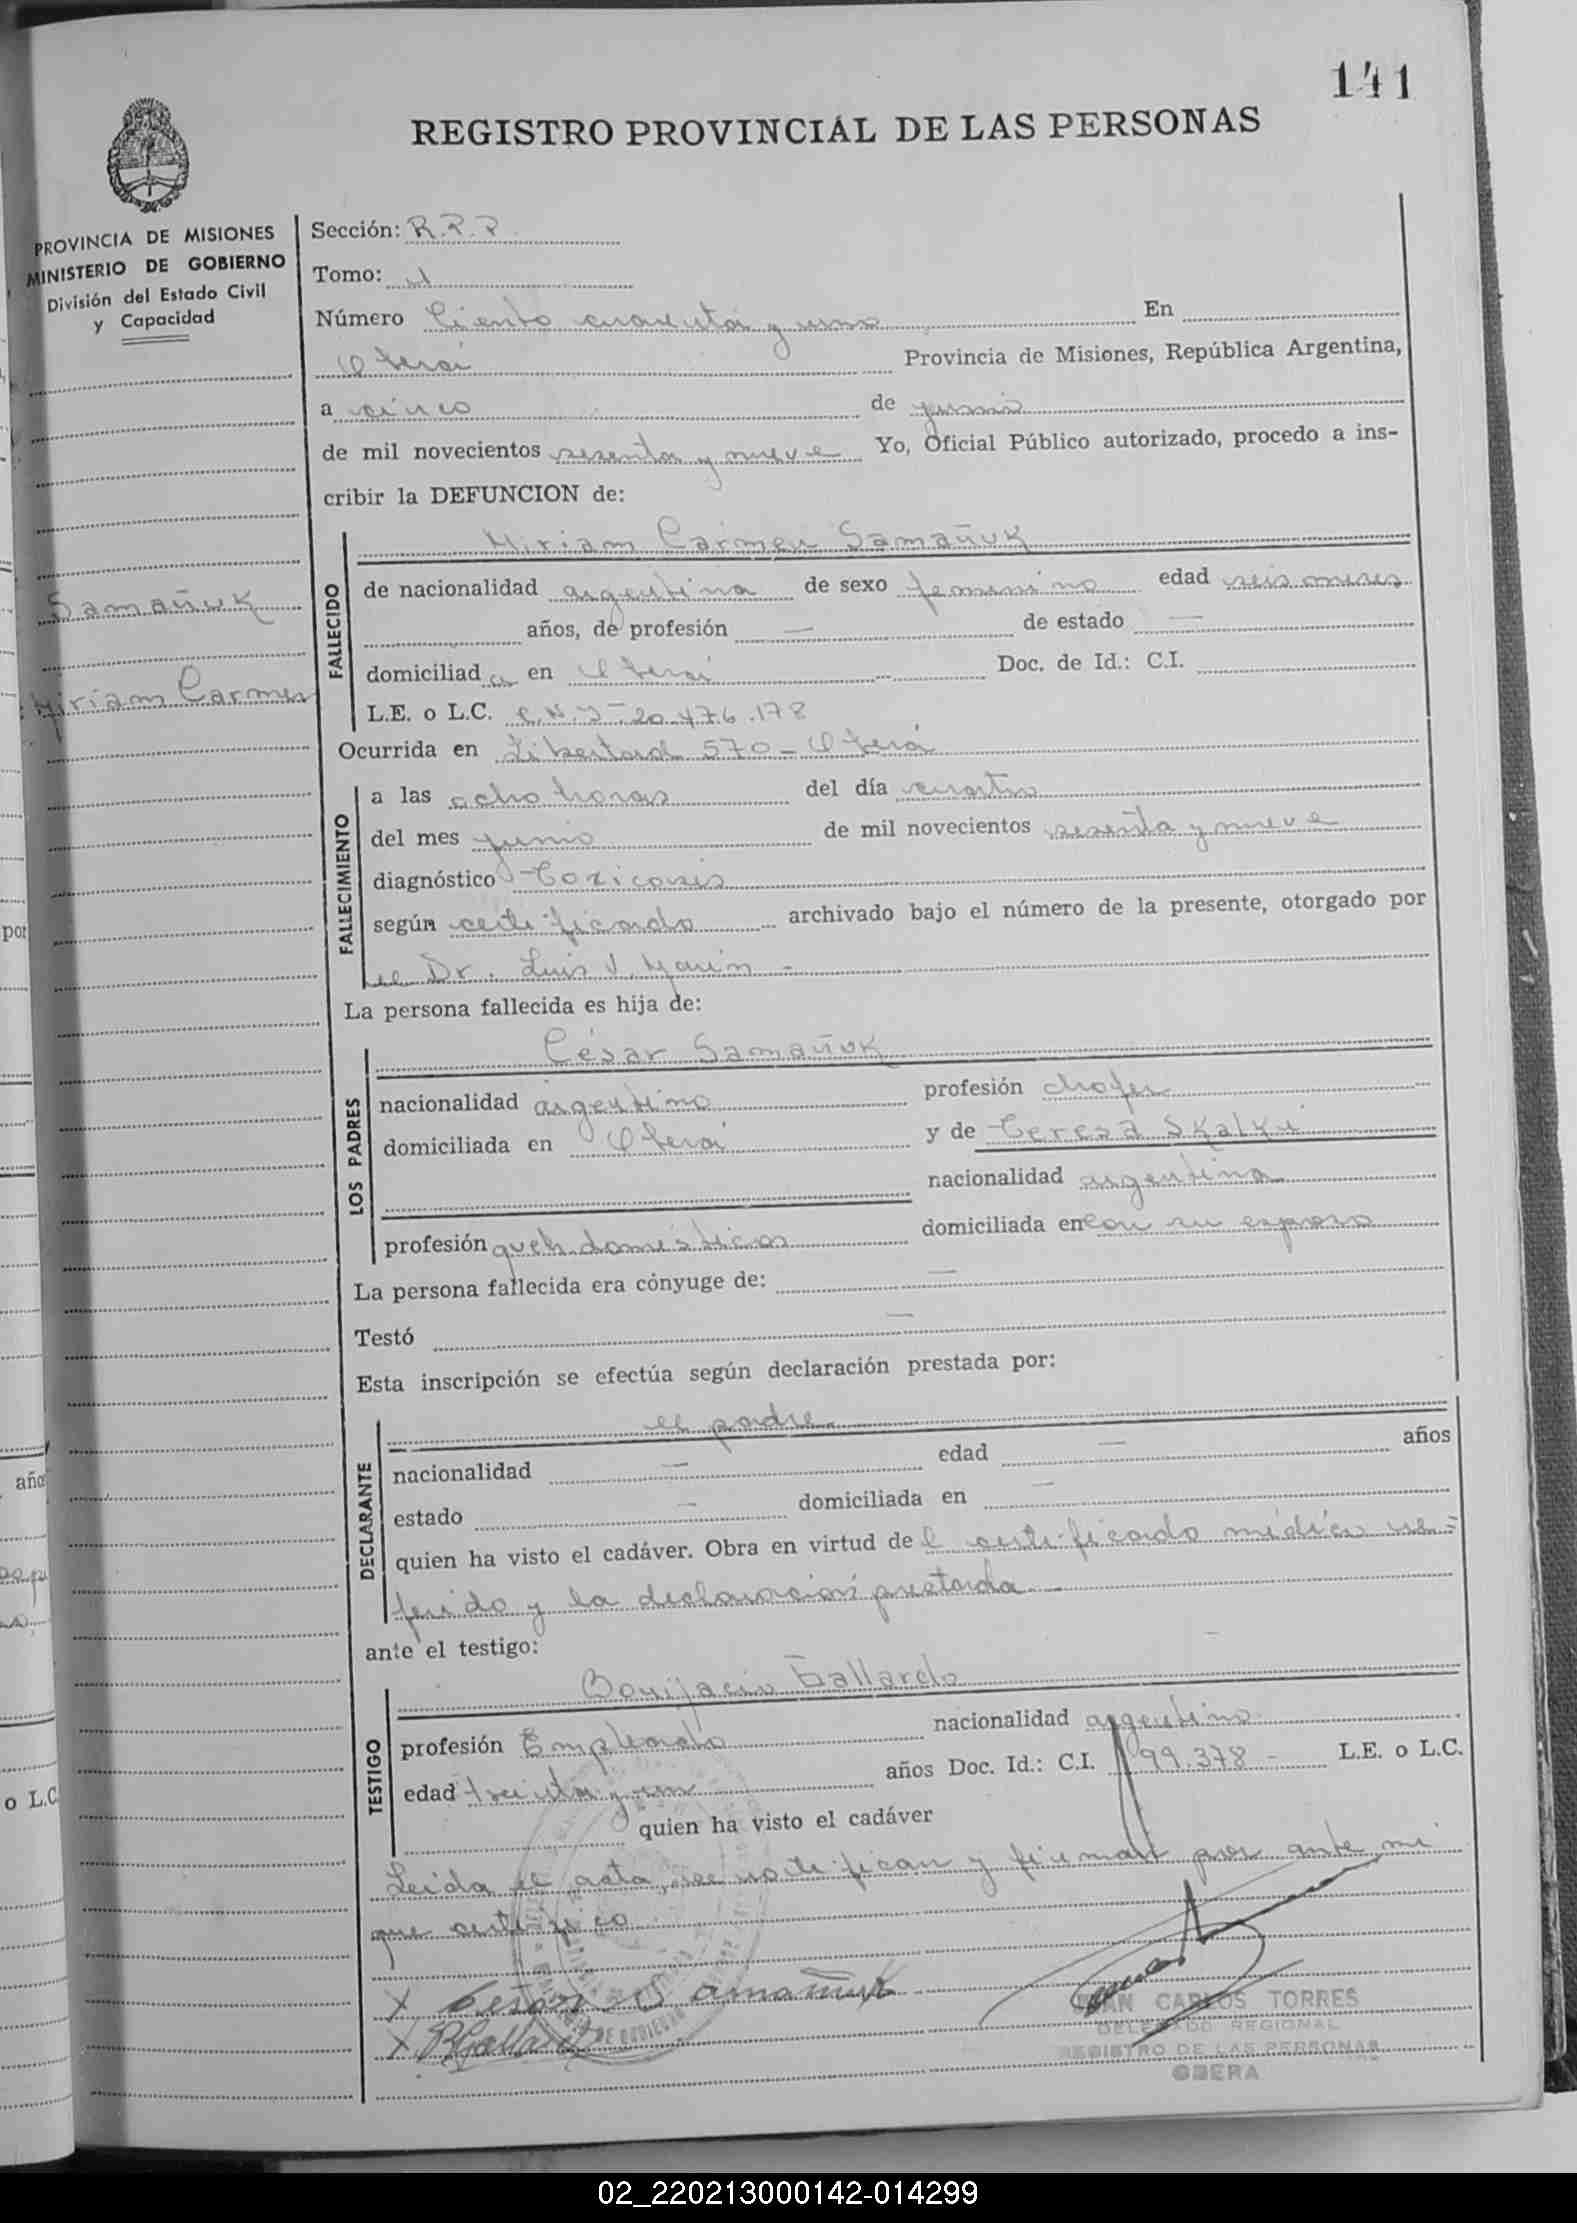 141
REGISTRO PROVINCIAL DE LAS PERSONAS
PROVINCIA DE MISIONES
MINISTERIO DE GOBIERNO
División del Estado Civil
y Capacidad
Samañuk
Miriam Carmen
Sección: R.P.P.
Tomo: I
Número Ciento cuarenta y uno En
Oberá Provincia de Misiones, República Argentina,
a cinco de junio
de mil novecientos sesenta y nueve Yo, Oficial Público autorizado, procedo a ins-
cribir la DEFUNCION de:
FALLECIDO
Miriam Carmen Samañuk
de nacionalidad argentina de sexo femenino edad seis meses
años, de profesión — de estado —
domiciliad a en Oberá Doc. de Id.: C.I.
L.E. o L.C. C.N.I-20.476.178
Ocurrida en Libertad 570 - Oberá
FALLECIMIENTO
a las ocho horas del día cuatro
del mes junio de mil novecientos sesenta y nueve
diagnóstico Toxicosis
según certificado archivado bajo el número de la presente, otorgado por
el Dr. Luis V. Marín -
La persona fallecida es hija de:
LOS PADRES
César Samañuk
nacionalidad argentino profesión chofer
domiciliada en Oberá y de Teresa Skalyi
nacionalidad argentina
profesión queh. domésticos domiciliada en con su esposo
La persona fallecida era cónyuge de: —
Testó —
Esta inscripción se efectúa según declaración prestada por:
DECLARANTE
el padre
nacionalidad — edad — años
estado — domiciliada en —
quien ha visto el cadáver. Obra en virtud de l certificado médico re=
ferido y la declaración prestada -
ante el testigo:
TESTIGO
Bonifacio Gallardo
profesión Empleado nacionalidad argentino
edad treinta y un años Doc. Id.: C.I. 199.378 - L.E. o L.C.
quien ha visto el cadáver
Leida el acta, se ratifican y firman por ante mi
que certifico
X Cesar Samañuk
X BGallardo
JUAN CARLOS TORRES
DELEGADO REGIONAL
REGISTRO DE LAS PERSONAS
OBERA
por
año
o L.C
02_220213000142-014299